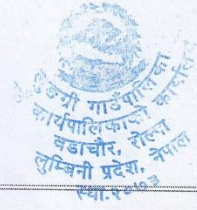 लुङग्री गाउँपालिका
कार्यपालिकाको कार्यालय
वडाचौर, रोल्पा
लुम्बिनी प्रदेश, नेपाल
स्था.२०७३